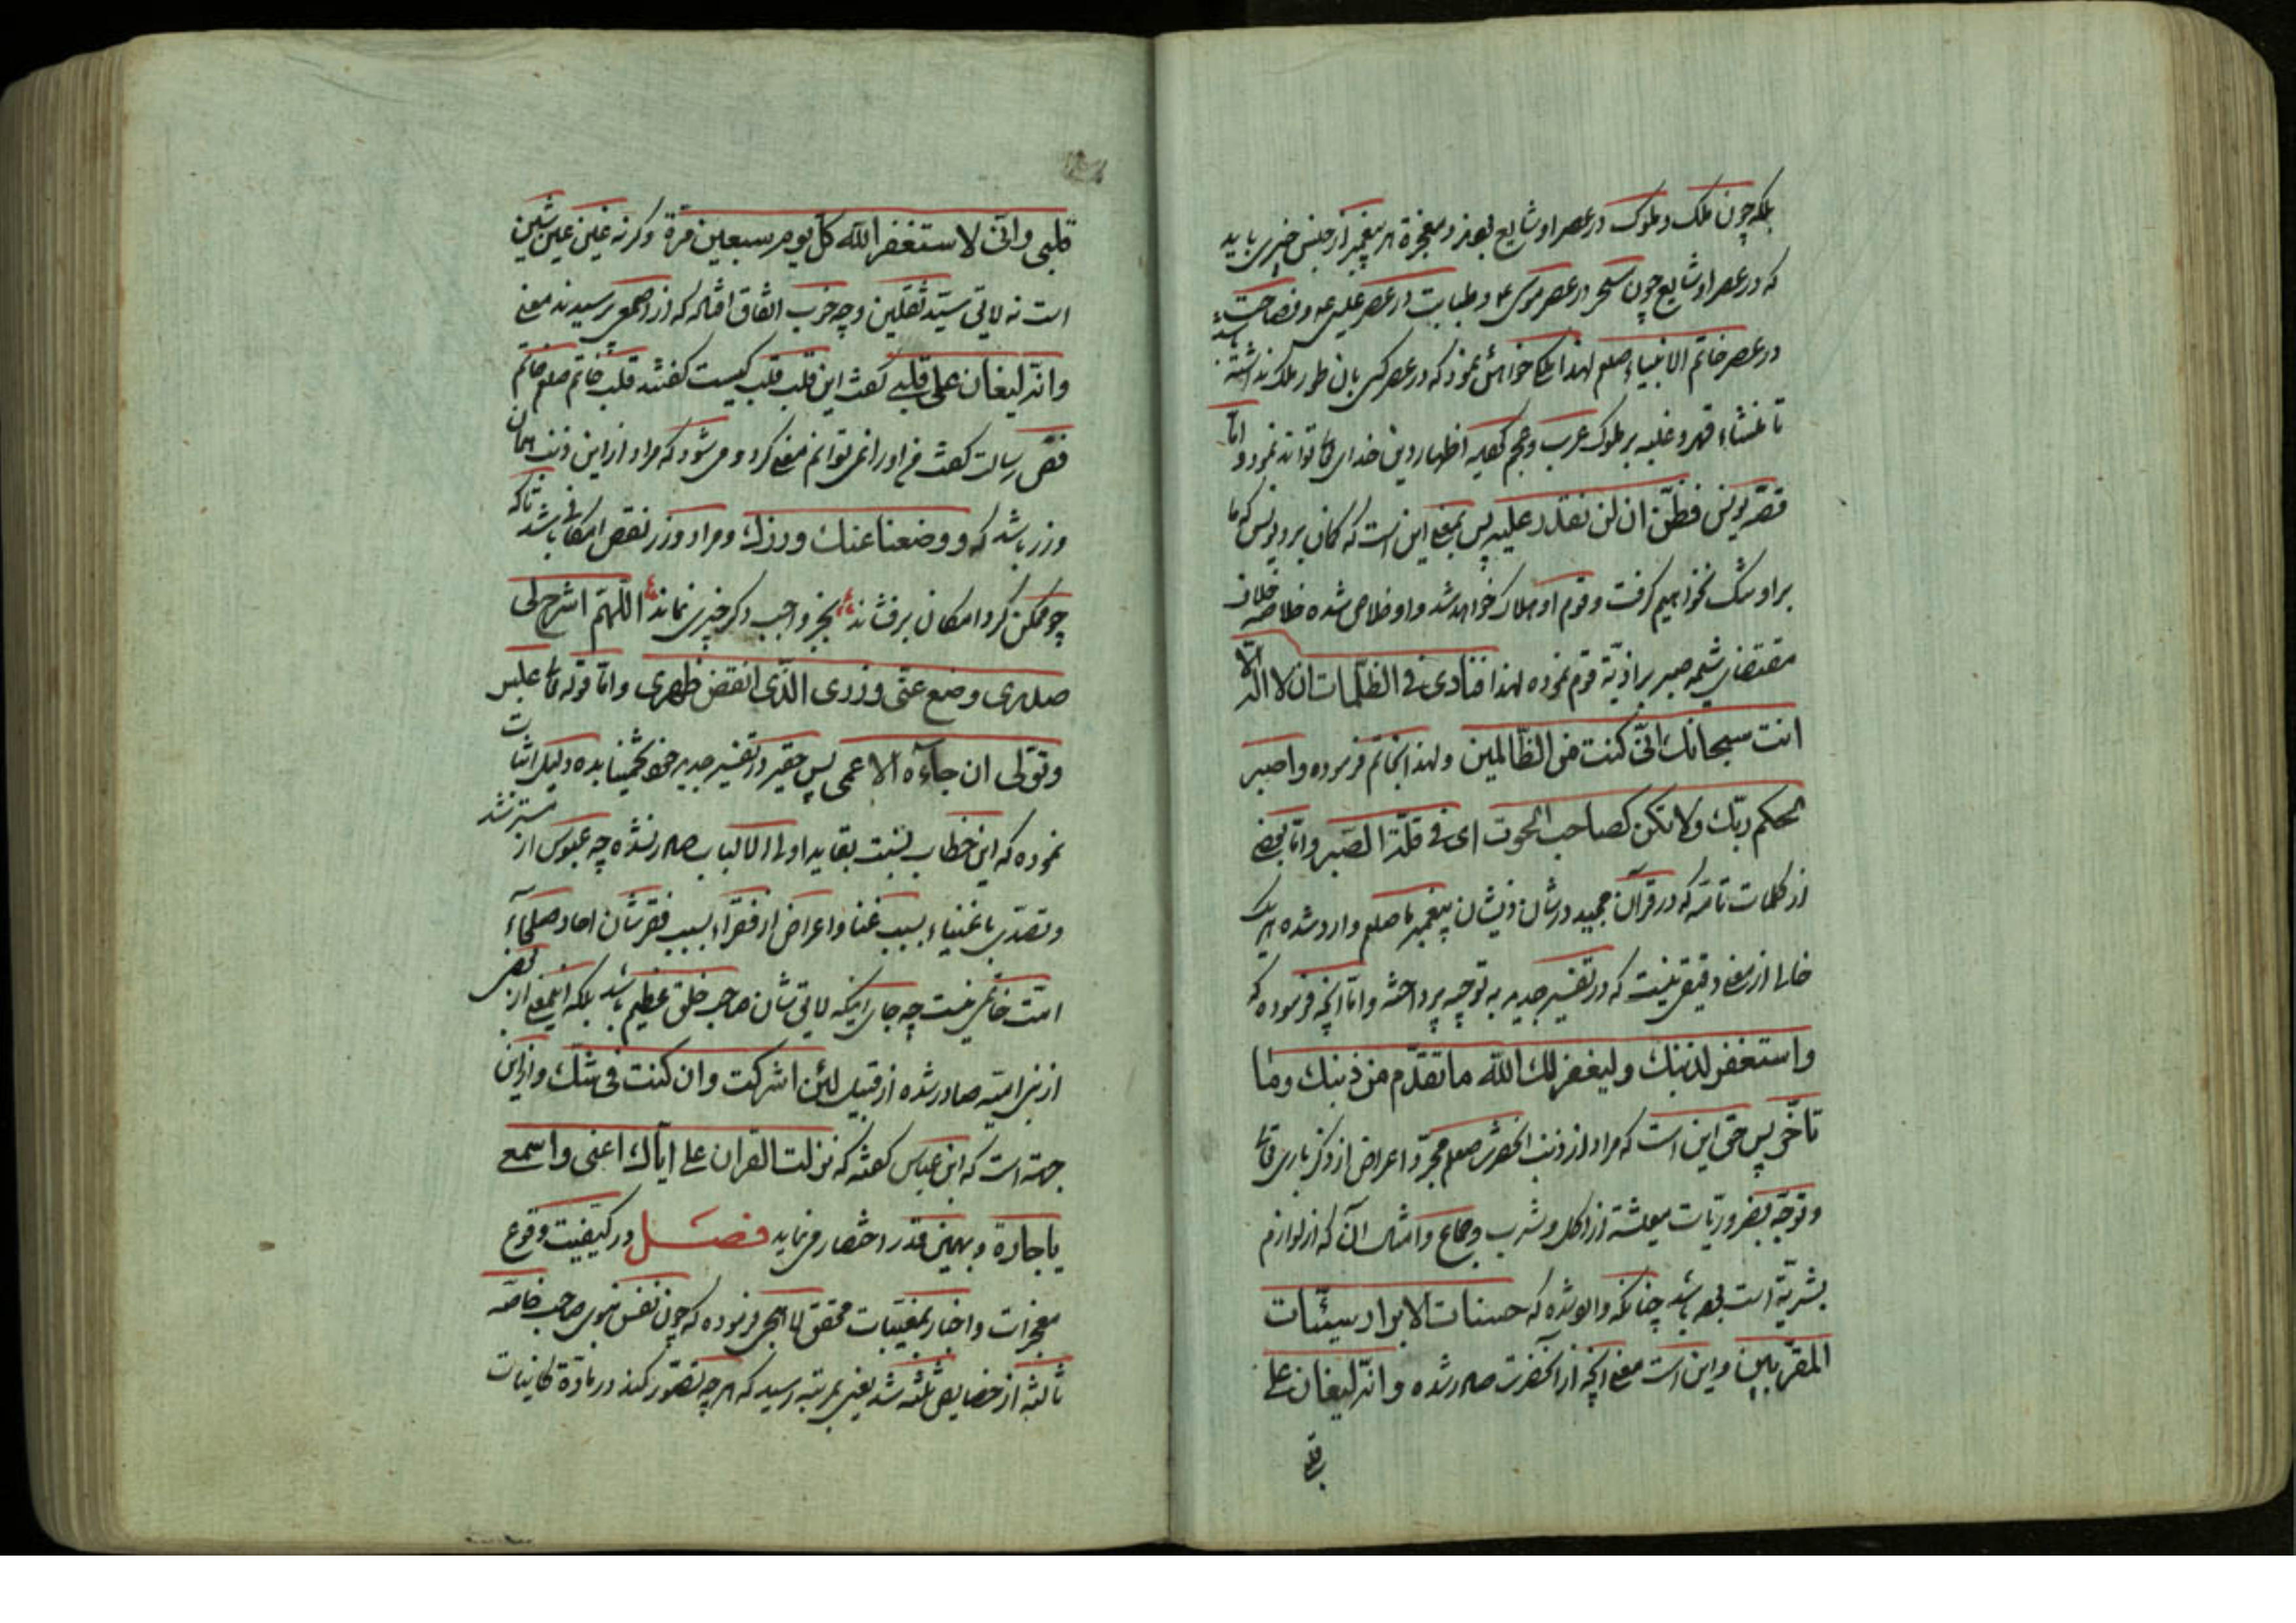 بلکه چون ملک و ملوک در عصر او شایع بود و معجزهٔ هر پیغمبر از جنس چیزی باید
که در عصر او شایع چون سحر در عصر موسی ع و طبابت در عصر عیسی ع و فصاحت
در عصر خاتم الانبیاء صلعم لهذا ملکی خواهش نمود که در عصر کسی بان طور ملک نداشته باشد
تا غشاء قهر و غلبه بر ملوک عرب و عجم کعبه اظهار دین خدای تعالی تواند نمود و اما
قصّه یونس فظنّ ان لن نقدر علیه پس بمعنی این است که کمان برد یونس که ما
بر او تنگ نخواهیم گرفت و قوم او هلاک خواهد شد و او خلاص شده خلاصه خلاف
مقتضای شیمه صبر بر اذیّة قوم نموده لهذا فنادی فی الظلمات ان لا اله الّا
انت سبحانک انّی کنت من الظّالمین ولهذا بخاتم فرموده واصبر
لحکم ربّک ولا تکن کصاحب الحوت ای فی قلّة الصّبر و امّا بعضی
از کلمات تامّه که در قرآن مجید در شان ذیشان پیغمبر ما صلعم وارد شده هر یک
خالی از معنی دقیقی نیست که در تفسیر جدید به توجیه پرداخته و امّا آنچه فرموده که
واستغفر لذنبک ولیغفر لک اللّه ما تقدّم من ذنبک وما
تأخّر پس حق این است که مراد از ذنب آنحضرت صلعم مجرّد اعراض از ذکر باری تعالی
و توجّه بضروریّات معیشة از اکل و شرب و جماع و امثال آن که از لوازم
بشریّة است بوده باشد چنانکه وارد شده که حسنات الابرار سیّئات
المقرّبین و این است معنی آنچه از آنحضرت صادر شده وانّه لیغان علی
قلبی
قلبی وانّی لاستغفر اللّه کلّ یوم سبعین مرّة و کرنه غین عین شین
است نه لایق سیّد ثقلین و چه خوب اتّفاق افتاده که از اصمعی پرسیدند معنی
وانّه لیغان علی قلبی گفت این قلب قلب کیست گفتند قلب خاتم صلعم خاتم
فصّ رسالت گفت من او را نمی توانم معنی کرد و می شود که مراد از این ذنب همان
وزر باشد که ووضعنا عنک وزرک و مراد وزر نقص امکانی باشد تا که
چو ممکن گرد امکان برفشاند بجز واجب دگر چیزی نماند اللّهمّ اشرح لی
صدری وضع عنّی وزری الّذی انقض ظهری و امّا قوله تعالی عبس
وتولّی ان جآءه الاعمی پس حقیر در تفسیر جدید خود دلیل اثبات
نموده که این خطاب نسبت بقاید اولی الالباب صادر نشده چه عبوس از مسترشد
و تصدّی باغنیاء بسبب غنا و اعراض از فقراء بسبب فقر شان احاد صلحآء
امّت خاتمی نیست چه جای اینکه لایق شان صاحب خلق عظیم باشد بلکه اینمعنی از بعضی
از بنی امیّه صادر شده از قبیل لئن اشرکت وان کنت فی شکّ و از این
جهت است که ابن عباس گفته که نزلت القران علی ایّاک اعنی واسمعی
یا جارة و بهمین قدر اختصار می نماید فصل در کیفیّت وقوع
معجزات و اخبار بمغیبات محقق لاهیجی فرموده که چون نفس نبوی صاحب خاصّه
ثالثه از خصایص ثلثه شد یعنی بمرتبه رسید که هر چه تصوّر کند در مادّة کاینات